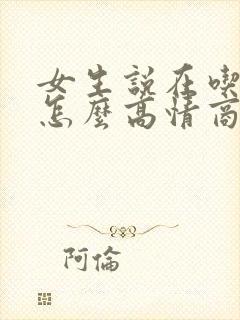 女生說在喫
怎麼高情商
阿倫